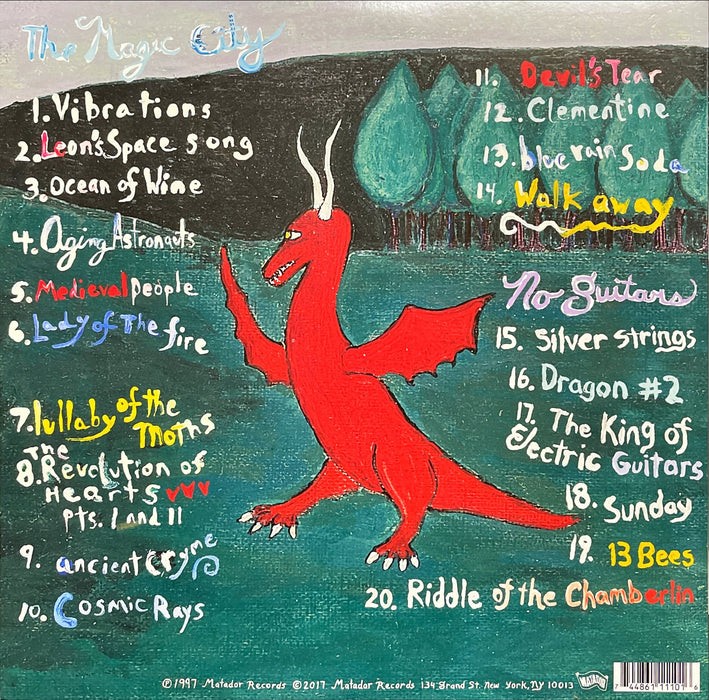 The Magic City
1. Vibrations
2. Leon's Space Song
3. Ocean of Wine
4. Aging Astronauts
5. Medieval people
6. Lady of The fire
7. lullaby of the
Moths
The
8. Revolution of
Hearts
pts. I and II
9. ancient cryme
10. Cosmic Rays
11. Devil's Tear
12. Clementine
13. blue rain Soda
14. Walk away
No guitars
15. Silver strings
16. Dragon #2
17. The King of
Electric Guitars
18. Sunday
19. 13 Bees
20. Riddle of the Chamberlin
℗1997 Matador Records ©2017 Matador Records 134 Grand St. New York, NY 10013
MATADOR
7 44861 11101 6